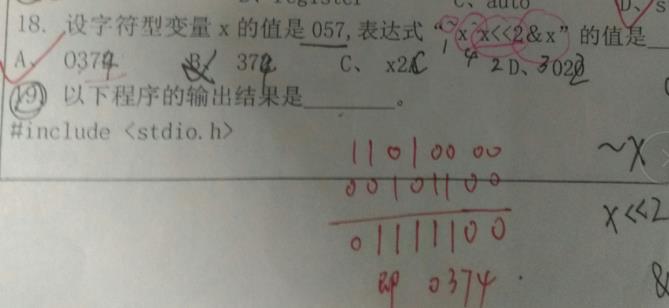 C、 auto D、 s
18. 设字符型变量 x 的值是 057,表达式 “~x^x<<2&x” 的值是
A、 0374 B、 374 C、 x2 D、 020
19. 以下程序的输出结果是________。
#include <stdio.h>
11010000 ~X
00101100 X<<2
01111100
即 0374 . &